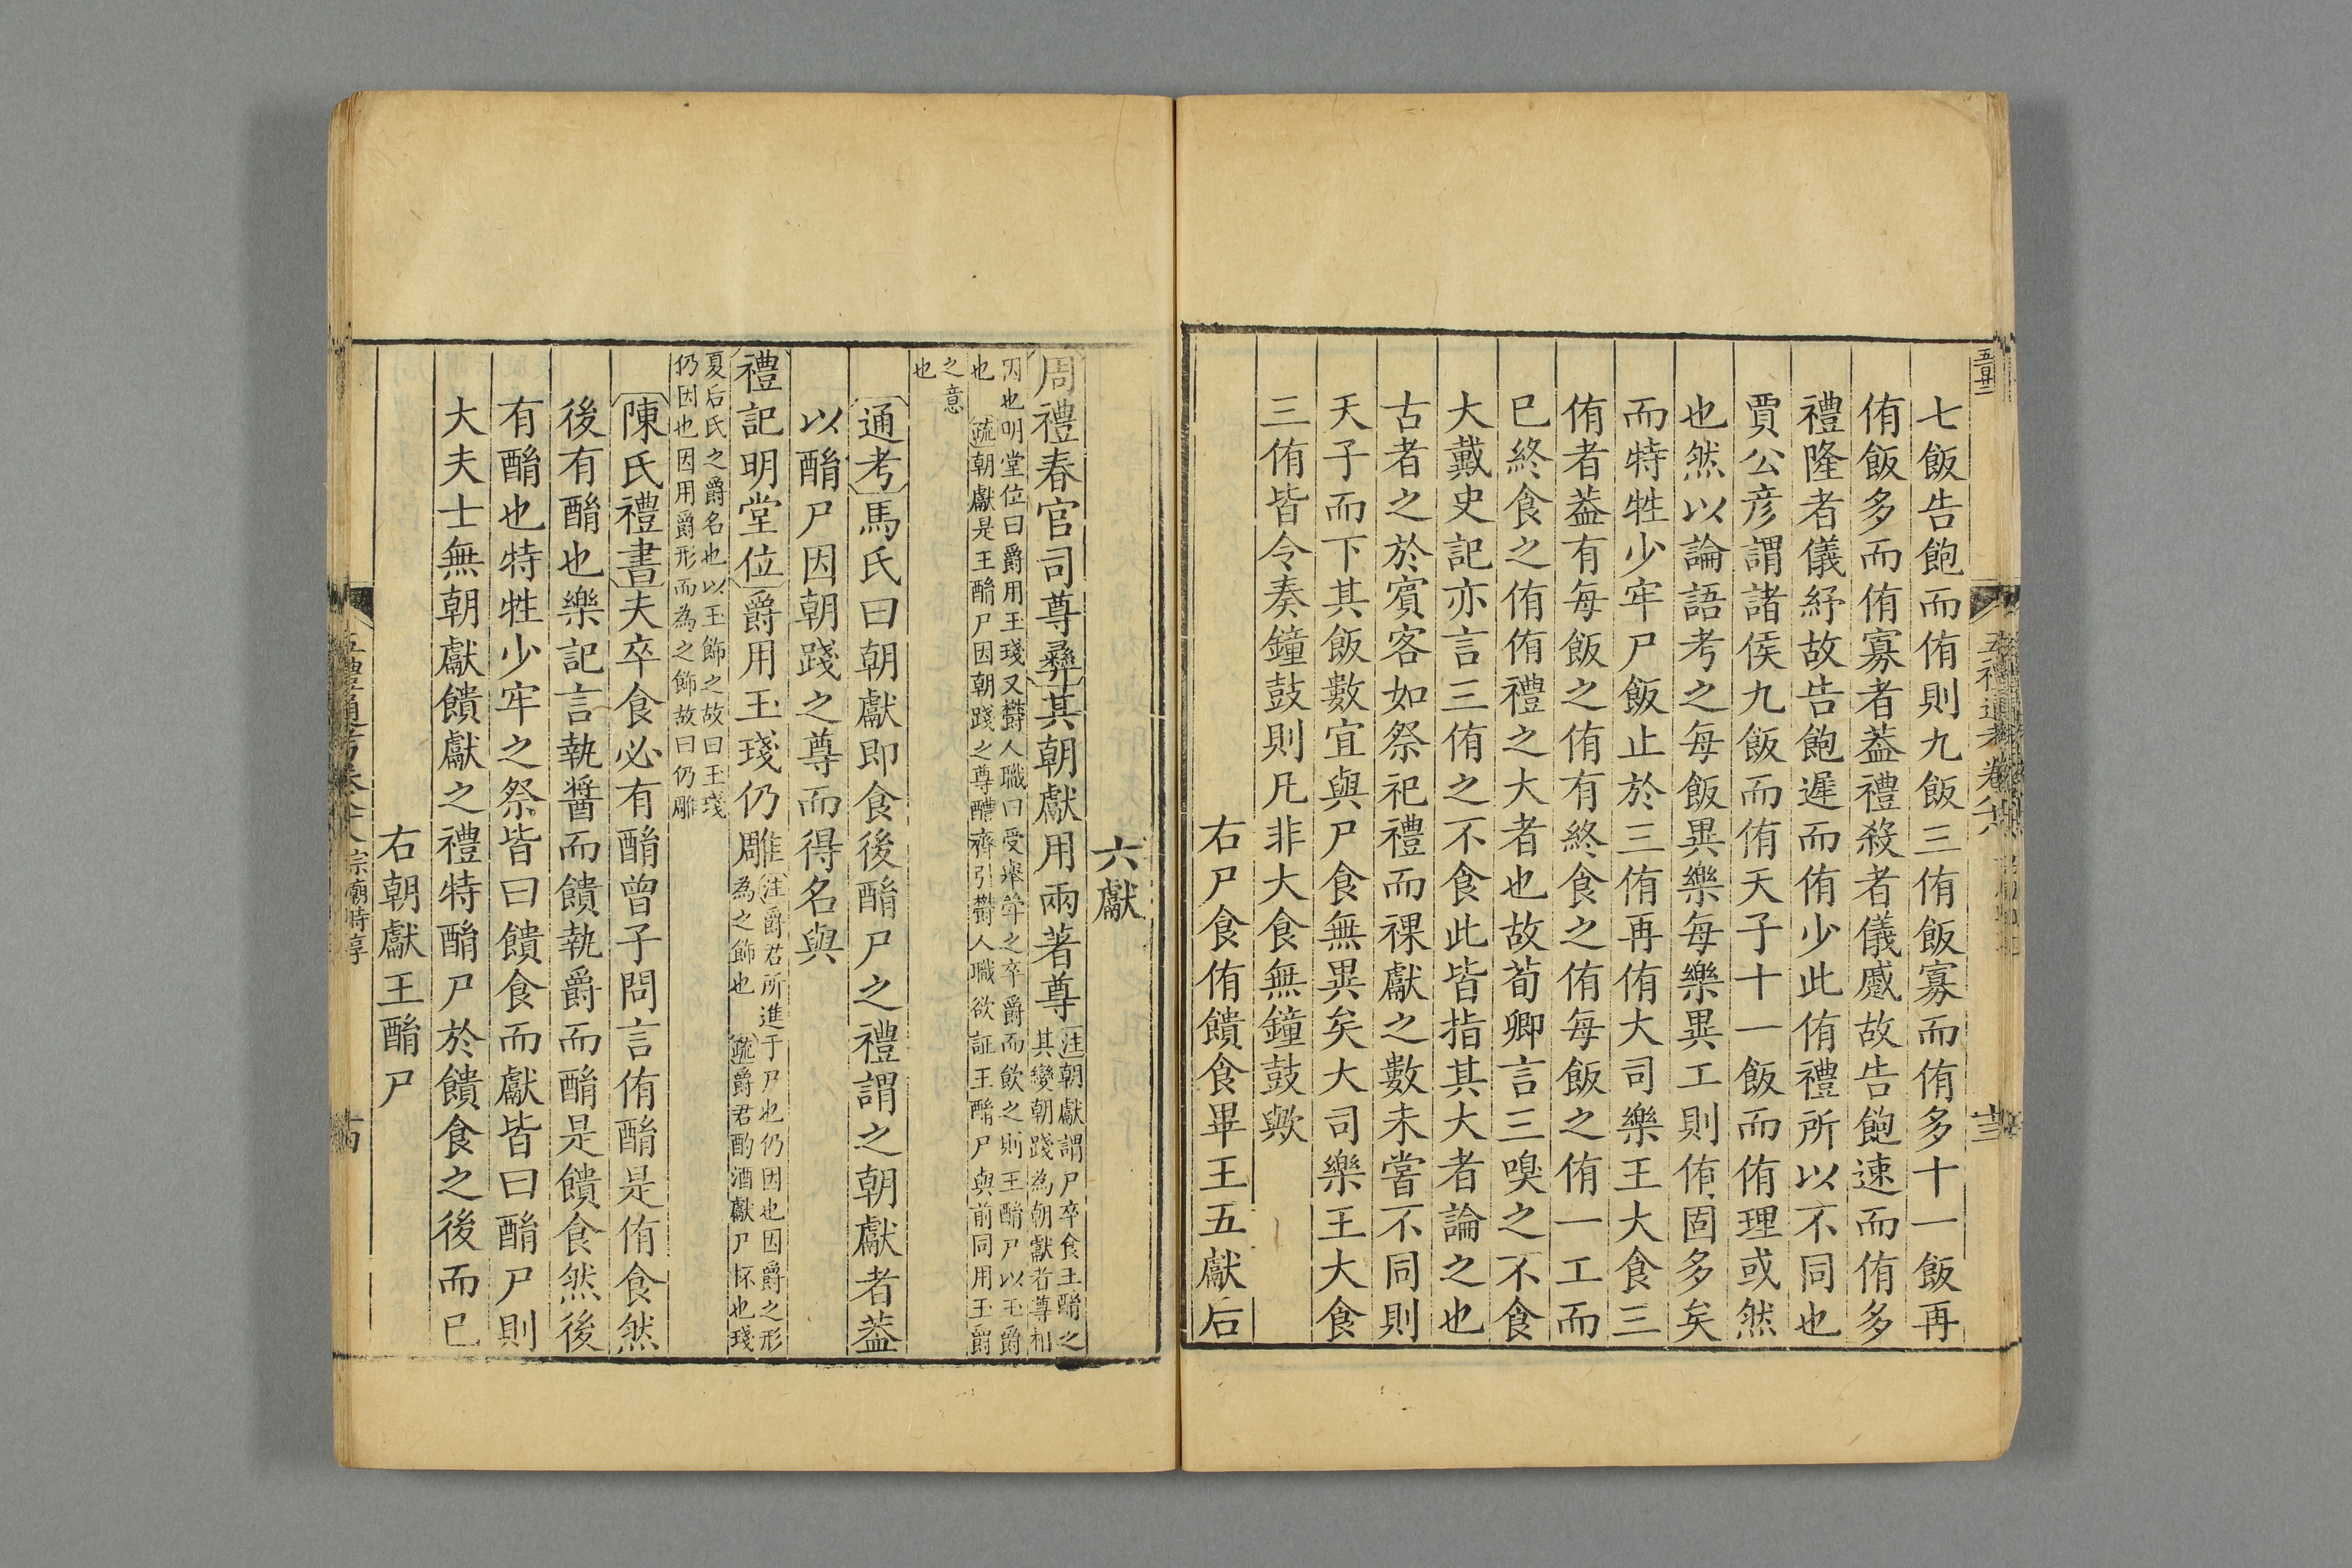 七飯告飽而侑則九飯三侑飯寡而侑多十一飯再
侑飯多而侑寡者葢禮殺者儀蹙故告飽速而侑多
禮隆者儀紓故告飽遲而侑少此侑禮所以不同也
賈公彦謂諸侯九飯而侑天子十一飯而侑理或然
也然以論語考之每飯異樂每樂異工則侑固多矣
而特牲少牢尸飯止於三侑再侑大司樂王大食三
侑者葢有每飯之侑有終食之侑每飯之侑一工而
已終食之侑侑禮之大者也故荀卿言三嗅之不食
大戴史記亦言三侑之不食此皆指其大者論之也
古者之於賓客如祭祀禮而祼獻之數未嘗不同則
天子而下其飯數宜與尸食無異矣大司樂王大食
三侑皆令奏鐘鼓則凡非大食無鐘鼓歟
右尸食侑饋食畢王五獻后
六獻
周禮春官司尊彝其朝獻用兩著尊
注朝獻謂尸卒食王酳之
其變朝踐為朝獻者尊相
因也明堂位曰爵用玉琖又鬱人職曰受舉斝之卒爵而飲之則王酳尸以玉爵
也 疏朝獻是王酳尸因朝踐之尊醴齊引鬱人職欲証王酳尸與前同用玉爵
之意
也
通考馬氏曰朝獻即食後酳尸之禮謂之朝獻者葢
以酳尸因朝踐之尊而得名與
禮記明堂位爵用玉琖仍雕
注爵君所進于尸也仍因也因爵之形
為之飾也 疏爵君酌酒獻尸杯也琖
夏后氏之爵名也以玉飾之故曰玉琖
仍因也因用爵形而為之飾故曰仍雕
陳氏禮書夫卒食必有酳曾子問言侑酳是侑食然
後有酳也樂記言執醬而饋執爵而酳是饋食然後
有酳也特牲少牢之祭皆曰饋食而獻皆曰酳尸則
大夫士無朝獻饋獻之禮特酳尸於饋食之後而已
右朝獻王酳尸